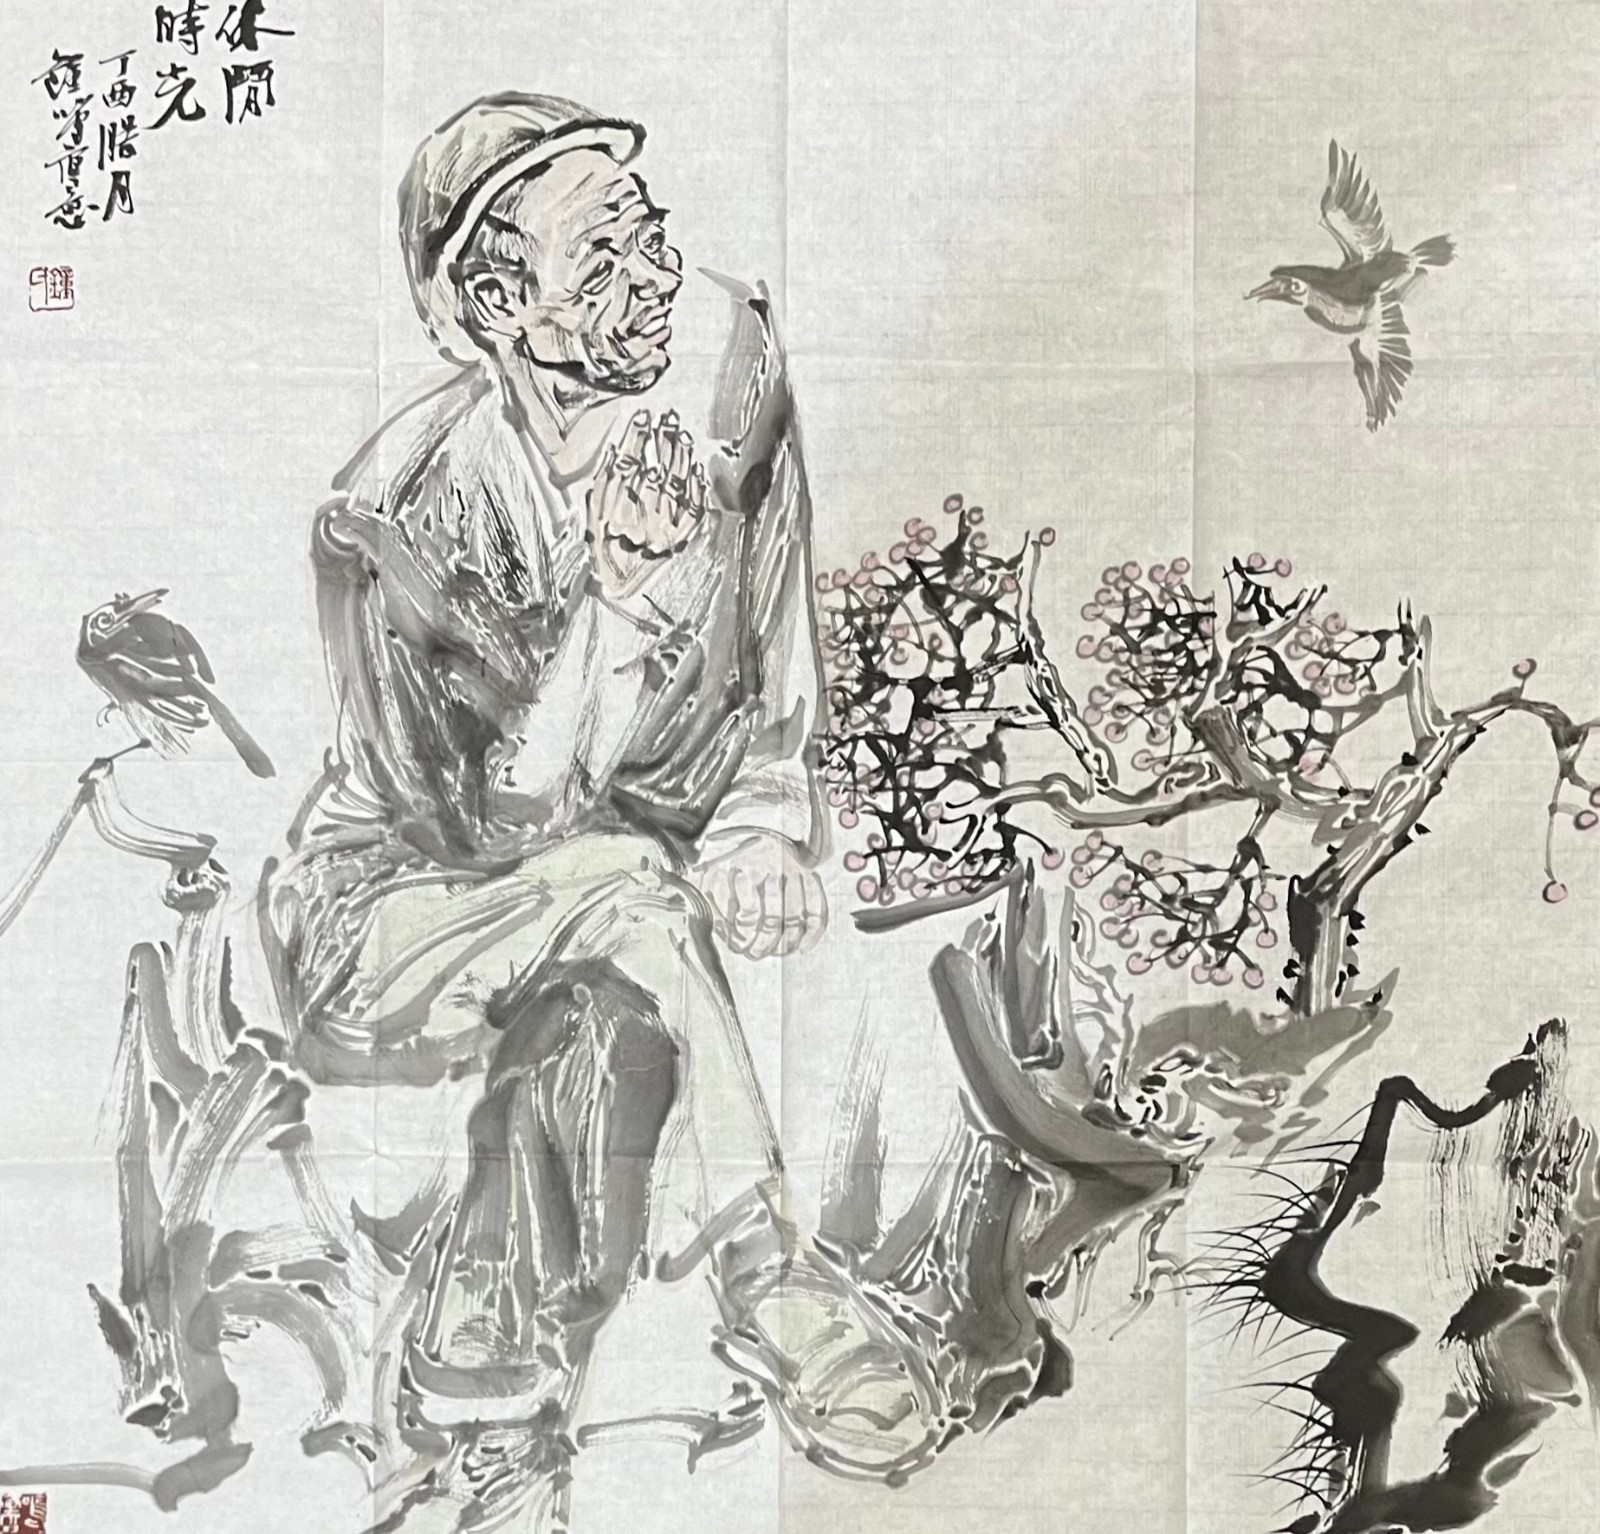 休閒
時光
丁酉腊月
鍾鳴寫意